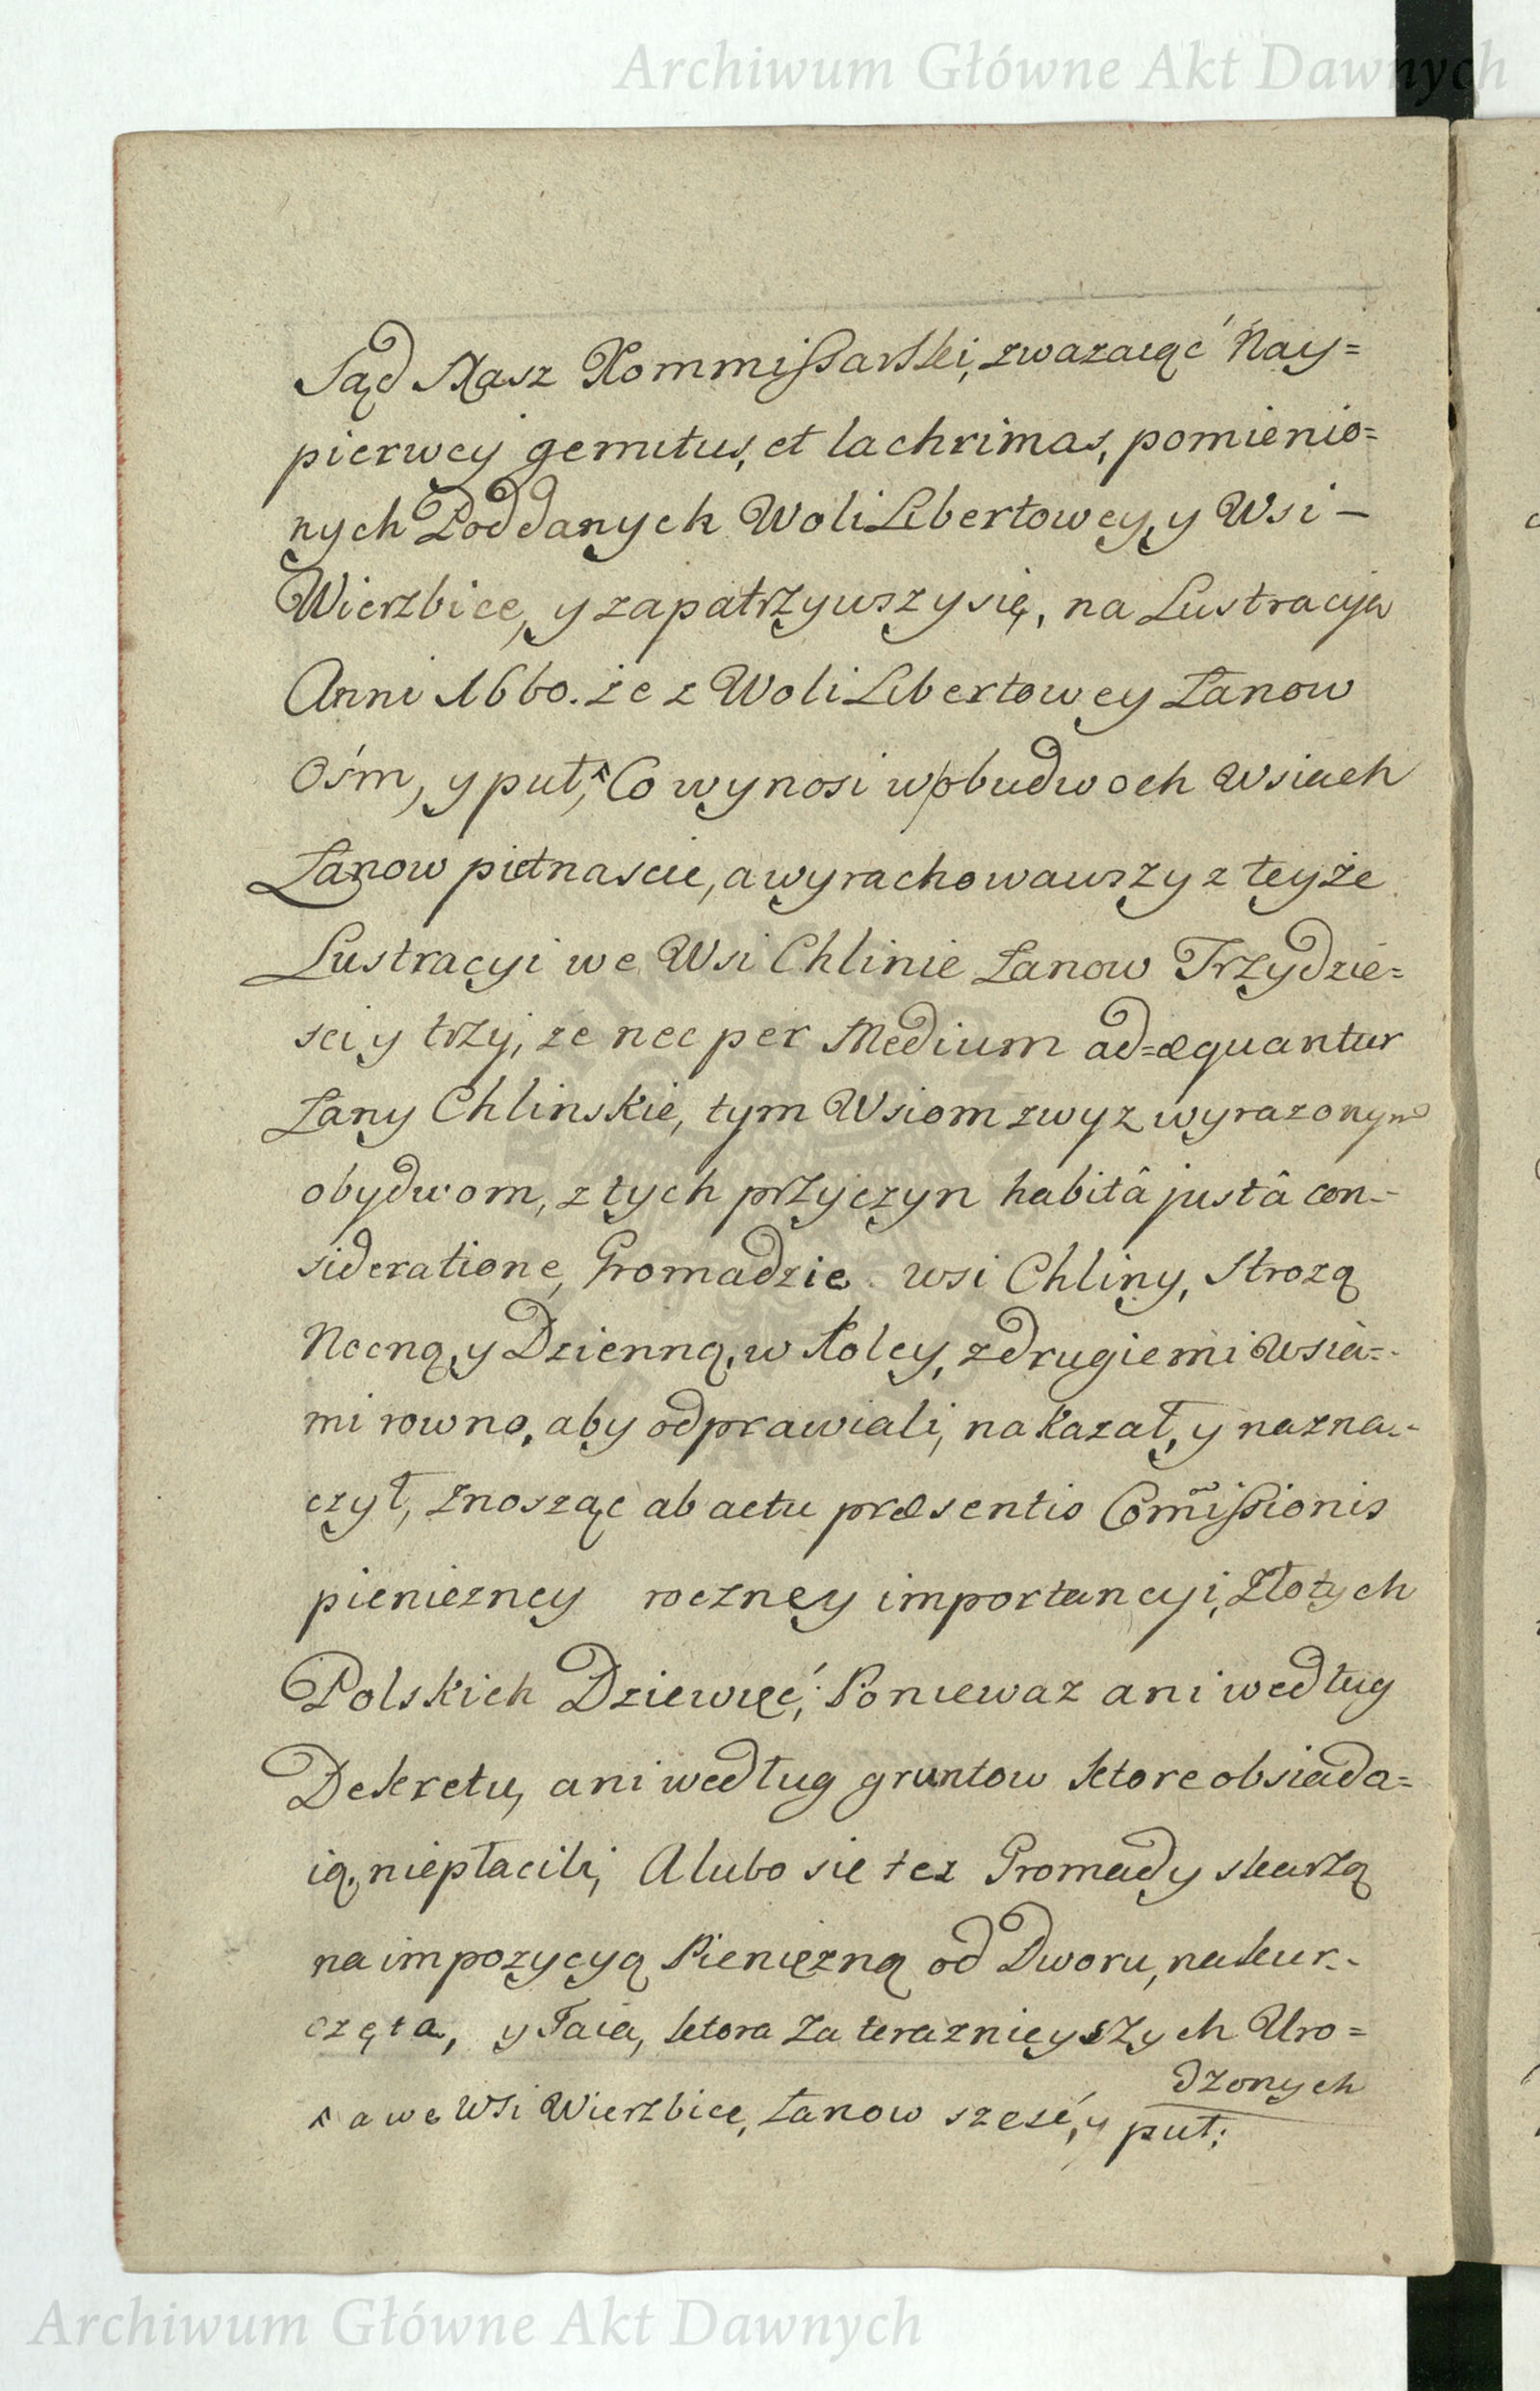 Archiwum Główne Akt Dawnych
Sąd Nasz Kommissarski, zwazaiąć Nay=
pierwey gemitus, et lachrimas, pomienio=
nych Poddanych Woli Libertowey, y Wsi –
Wierzbice, y zapatrzywszy się, na Lustracyą
Anni 1660. że z Woli Libertowey Łanow
Ośm, y puł, ^ Co wynosi w obudwoch Wsiach
Łanow pietnascie, a wyrachowawszy z teyże
Lustracyi we Wsi Chlinie Łanow Trzydzie=
sci y trzy, że nec per Medium ad=æquantur
Łany Chlinskie, tym Wsiom zwyz wyrazonym
obydwom, z tych przyczyn habitâ justâ con=
sideratione, Gromadzie wsi Chliny, Strozą
Nocną, y Dzienną, w Koley, z drugiemi Wsia=
mi rowno, aby odprawiali, nakazał, y nazna=
czył, znosząc ab actu præsentis Com̃issionis
pienieżney roczney importancyi, Złotych
Polskich Dziewięć, Poniewaz ani według
Dekretu, ani według gruntow ktore obsiada=
ią, niepłacili, A lubo sie tez Gromady skarżą
na impozycyą Pienięzną od Dworu, na kur=
częta, y Jaia, ktora za teraznieyszych Uro=
dzonych
^ a we Wsi Wierzbice, Łanow szesć, y puł;
Archiwum Główne Akt Dawnych